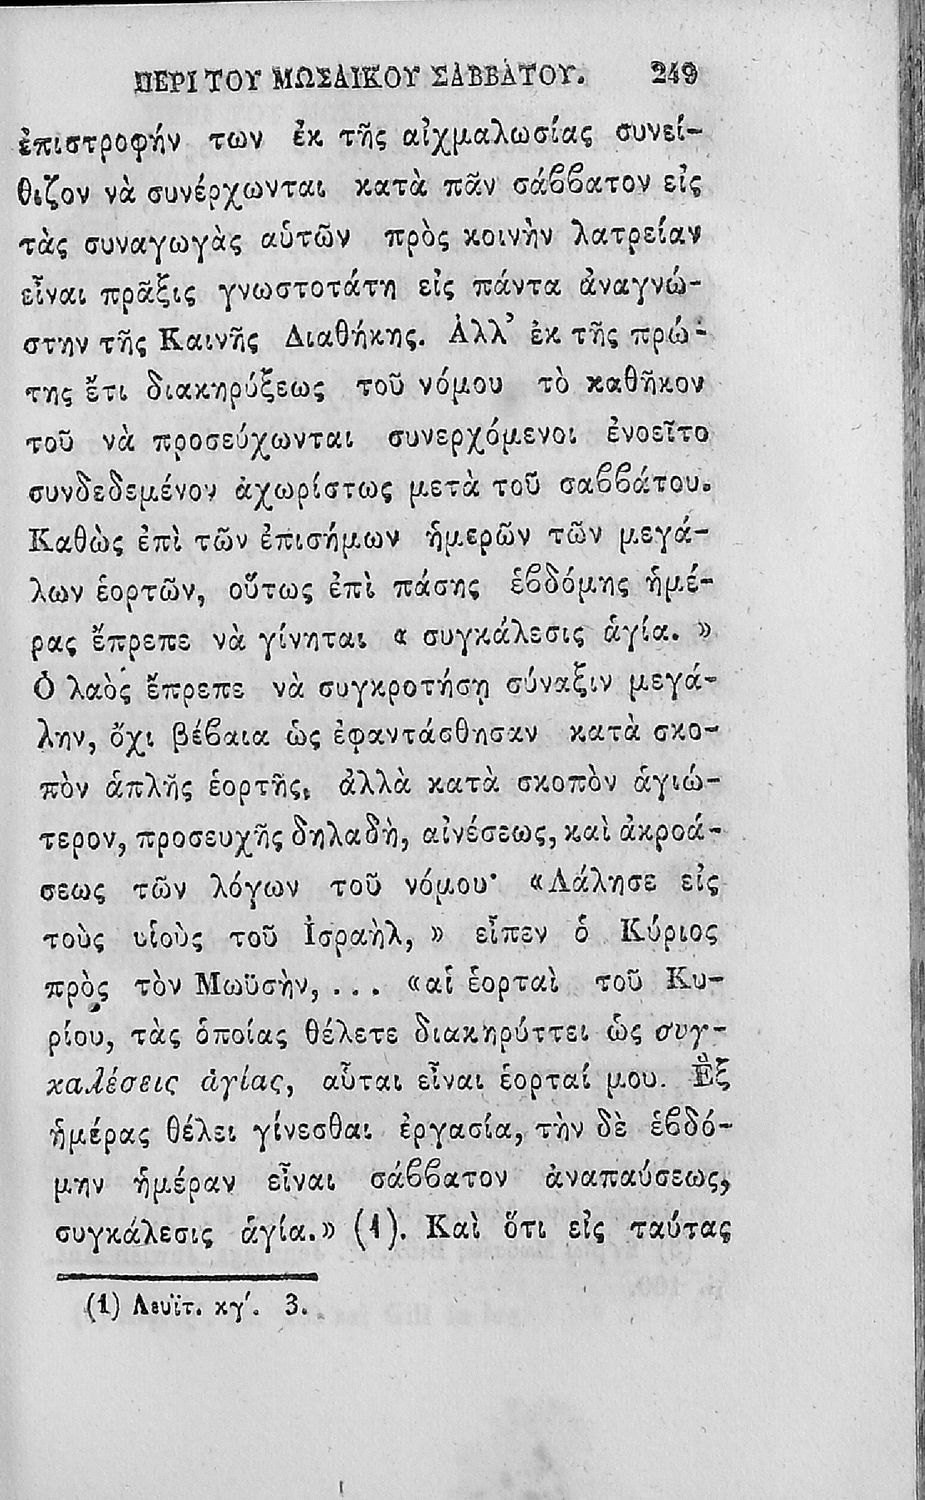 ΠΕΡΙ ΤΟΥ ΜΩΣΑΙΚΟΥ ΣΑΒΒΑΤΟΥ. 249
ἐπιστροφήν των ἐκ τῆς αἰχμαλωσίας συνεί-
θιζον νὰ συνέρχωνται κατὰ πᾶν σάββατον εἰς
τὰς συναγωγὰς αὑτῶν πρὸς κοινὴν λατρείαν
εἶναι πρᾶξις γνωστοτάτη εἰς πάντα ἀναγνώ-
στην τῆς Καινῆς Διαθήκης. Ἀλλ’ ἐκ τῆς πρώ-
της ἔτι διακηρύξεως τοῦ νόμου τὸ καθῆκον
τοῦ νὰ προσεύχωνται συνερχόμενοι ἐνοεῖτο
συνδεδεμένον ἀχωρίστως μετὰ τοῦ σαββάτου.
Καθὼς ἐπὶ τῶν ἐπισήμων ἡμερῶν τῶν μεγά-
λων ἑορτῶν, οὕτως ἐπὶ πάσης ἑβδόμης ἡμέ-
ρας ἔπρεπε νὰ γίνηται « συγκάλεσις ἁγία. »
Ὁ λαὸς ἔπρεπε νὰ συγκροτήσῃ σύναξιν μεγά-
λην, ὄχι βέβαια ὡς ἐφαντάσθησαν κατὰ σκο-
πὸν ἁπλῆς ἑορτῆς, ἀλλὰ κατὰ σκοπὸν ἁγιώ-
τερον, προσευχῆς δηλαδὴ, αἰνέσεως, καὶ ἀκροά-
σεως τῶν λόγων τοῦ νόμου· «Λάλησε εἰς
τοὺς υἱοὺς τοῦ Ἰσραὴλ, » εἶπεν ὁ Κύριος
πρὸς τὸν Μωϋσὴν, . . . «αἱ ἑορταὶ τοῦ Κυ-
ρίου, τὰς ὁποίας θέλετε διακηρύττει ὡς συγ-
καλέσεις ἁγίας, αὗται εἶναι ἑορταί μου. Ἓξ
ἡμέρας θέλει γίνεσθαι ἐργασία, τὴν δὲ ἑβδό-
μην ἡμέραν εἶναι σάββατον ἀναπαύσεως,
συγκάλεσις ἁγία.» (1). Καὶ ὅτι εἰς ταύτας
(1) Λευϊτ. κγ΄. 3.